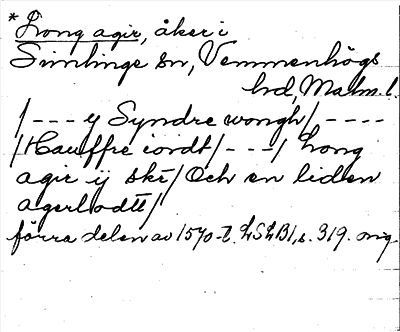 * Long agir, åker i
Simlinge sn, Vemmenhögs
hd, Malm. l.
/ - - - y Syndre wongh/ - - - -
/Hauffre iordt/ - - -/ Long
agir ij ske/ Och en liden
agerbodtt/
förra delen av 1570-t. LSLB1, s. 319. orig.